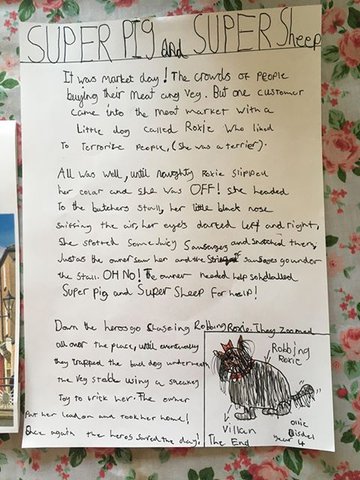 SUPER PIG and SUPER Sheep
It was market day! The crowds of people
buying their meat and veg. But one customer
came into the meat market with a
little dog called Roxie who liked
to Terrorise people, (She was a terrier).
All was well, until naughty Roxie slipped
her colar and she was OFF! she headed
To the butchers stall, her little black nose
sniffing the air, her eyes darted left and right,
She spotted some juicy Sausages and snatched them,
Just as the owner saw her and the Sausages go under
the Stall. OH NO! The owner needed help so he called
Super pig and Super Sheep for help!
Down the heros go Chaseing Robbing Roxie. They zoomed
all over the place, until eventually
they trapped the bad dog underneath
the veg stall using a sneakey
Toy to trick her. The owner
Put her lead on and took her home!
Once again the heros saved the day!
Robbing
Roxie
Villan
The End
Ollie
Year 4